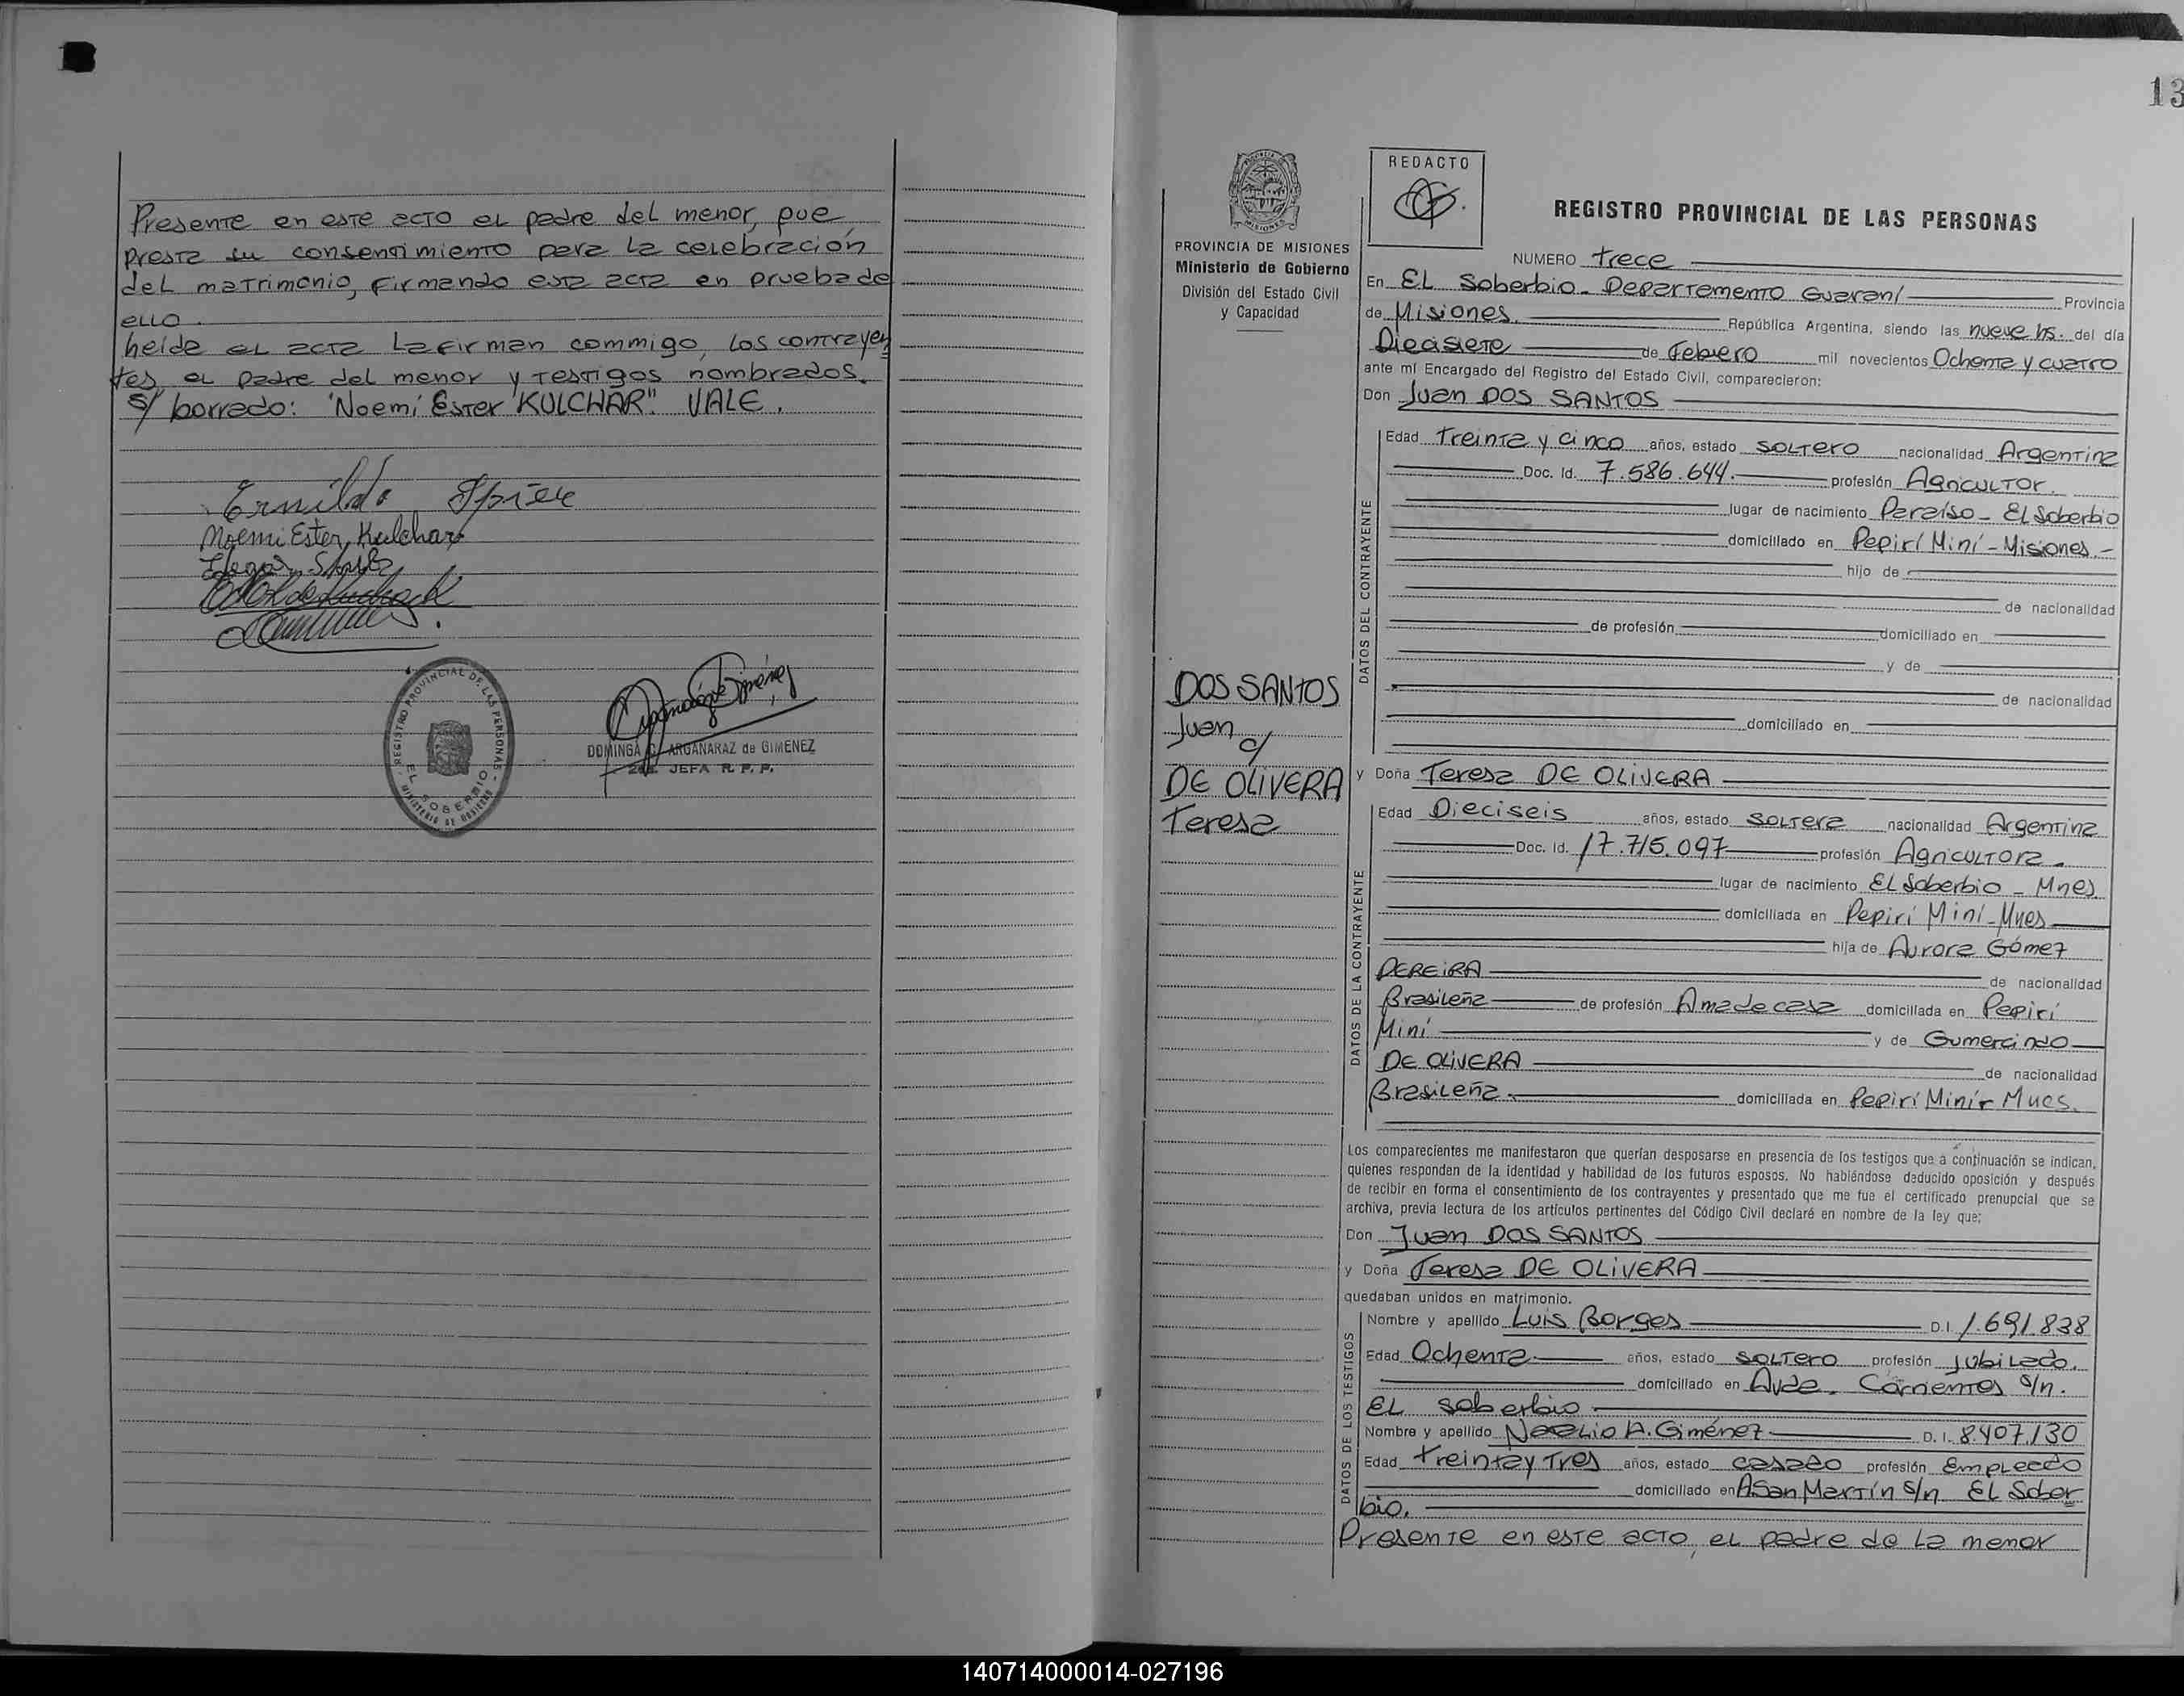 Presente en este acto el padre del menor, que
presta su consentimiento para la celebración
del matrimonio, firmando esta acta en prueba de
ello.
heida el acta La firman commigo, los contrayen
tes, el padre del menor y testigos nombrados.
S/ borrado: "Noemí Ester KULCHAR". VALE.
Ermildo
Noemi Ester Kulchar
REGISTRO PROVINCIAL DE LAS PERSONAS - MINISTERIO DE GOBIERNO
EL SOBERBIO
DOMINGA C. ARGAÑARAZ de GIMENEZ
JEFA R. P. P.
13
PROVINCIA DE MISIONES
Ministerio de Gobierno
División del Estado Civil
y Capacidad
REDACTO
REGISTRO PROVINCIAL DE LAS PERSONAS
NUMERO trece
En EL Soberbio - Departamento Guaraní Provincia
de Misiones República Argentina, siendo las nueve hs. del día
Diecisiete de Febrero mil novecientos Ochenta y cuatro
ante mí Encargado del Registro del Estado Civil, comparecieron:
Don Juan DOS SANTOS
DATOS DEL CONTRAYENTE
Edad Treinta y cinco años, estado soltero nacionalidad Argentina
Doc. Id. 7.586.644. profesión Agricultor.
lugar de nacimiento Paraíso - El Soberbio
domiciliado en Pepirí Miní - Misiones.-
hijo de
de nacionalidad
de profesión domiciliado en
y de
de nacionalidad
domiciliado en
DOS SANTOS
Juan
c/
DE OLIVERA
Teresa
y Doña Teresa DE OLIVERA
DATOS DE LA CONTRAYENTE
Edad Dieciseis años, estado soltera nacionalidad Argentina
Doc. Id. 17.715.097 profesión Agricultora.
lugar de nacimiento El Soberbio - Mnes.
domiciliada en Pepirí Miní - Mnes
hija de Aurora Gómez
PEREIRA de nacionalidad
Brasileña de profesión Ama de casa domiciliada en Pepirí
Miní y de Gumercindo
DE OLIVERA de nacionalidad
Brasileña domiciliada en Pepirí Miní - Mnes.
Los comparecientes me manifestaron que querían desposarse en presencia de los testigos que a continuación se indican,
quienes responden de la identidad y habilidad de los futuros esposos. No habiéndose deducido oposición y después
de recibir en forma el consentimiento de los contrayentes y presentado que me fue el certificado prenupcial que se
archiva, previa lectura de los artículos pertinentes del Código Civil declaré en nombre de la ley que:
Don Juan DOS SANTOS
y Doña Teresa DE OLIVERA
quedaban unidos en matrimonio.
DATOS DE LOS TESTIGOS
Nombre y apellido Luis Borges D.I. 1.691.838
Edad Ochenta años, estado soltero profesión jubilado.
domiciliado en Avda. Corrientes s/n.
EL soberbio
Nombre y apellido Naelio A. Giménez D. I. 8.407.130
Edad treinta y Tres años, estado casado profesión Empleado
domiciliado en A San Martín s/n EL Sober
bio.
Presente en este acto, el padre de la menor
140714000014-027196